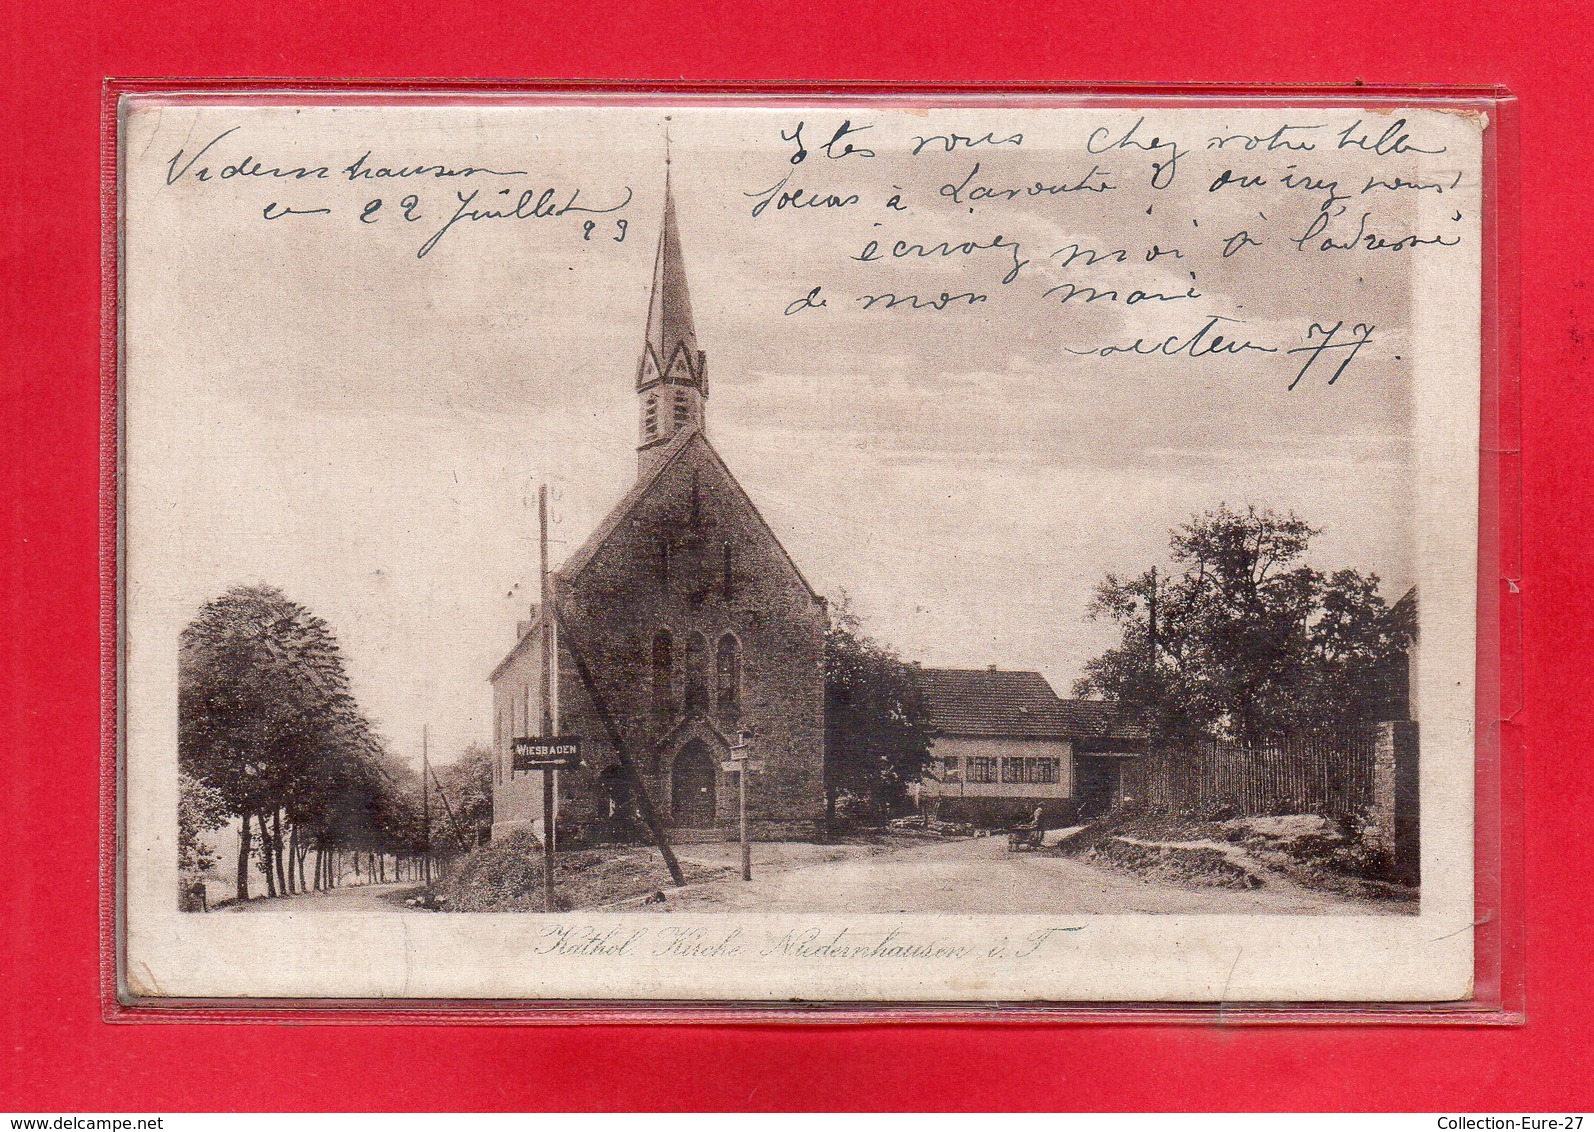 Niedernhausen
le 22 Juillet
23
Etes vous chez votre belle
soeur à Laroute? ou irez vous?
écrivez moi à l'adresse
de mon mari
secteur 77.
WIESBADEN
Kathol. Kirche Niedernhausen i. T.
www.delcampe.net
Collection-Eure-27